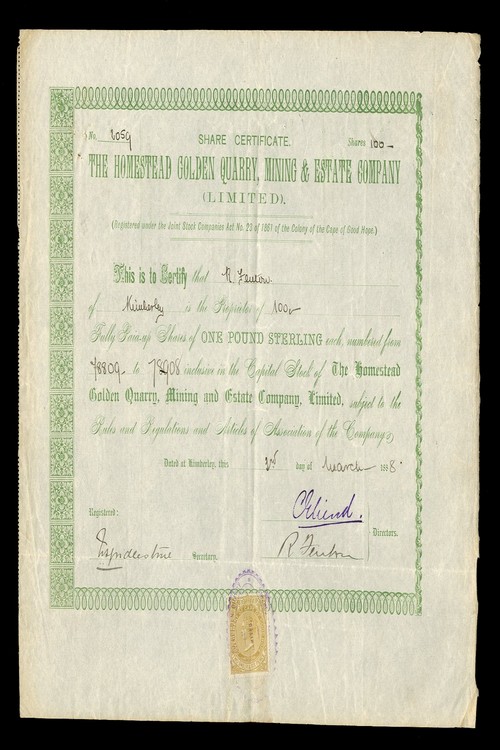 No. 2059
SHARE CERTIFICATE.
Shares 100 –
THE HOMESTEAD GOLDEN QUARRY, MINING & ESTATE COMPANY
(LIMITED).
(Registered under the Joint Stock Companies Act No. 23 of 1861 of the Colony of the Cape of Good Hope.)
This is to Certify that R Fenton
of Kimberley is the Proprietor of 100
Fully Paid-up Shares of ONE POUND STERLING each, numbered from
78809 to 78908 inclusive in the Capital Stock of The Homestead
Golden Quarry, Mining and Estate Company, Limited, subject to the
Rules and Regulations and Articles of Association of the Company.
Dated at Kimberley, this 2nd day of March 1888.
Registered:
Directors.
R Fenton
Secretary.